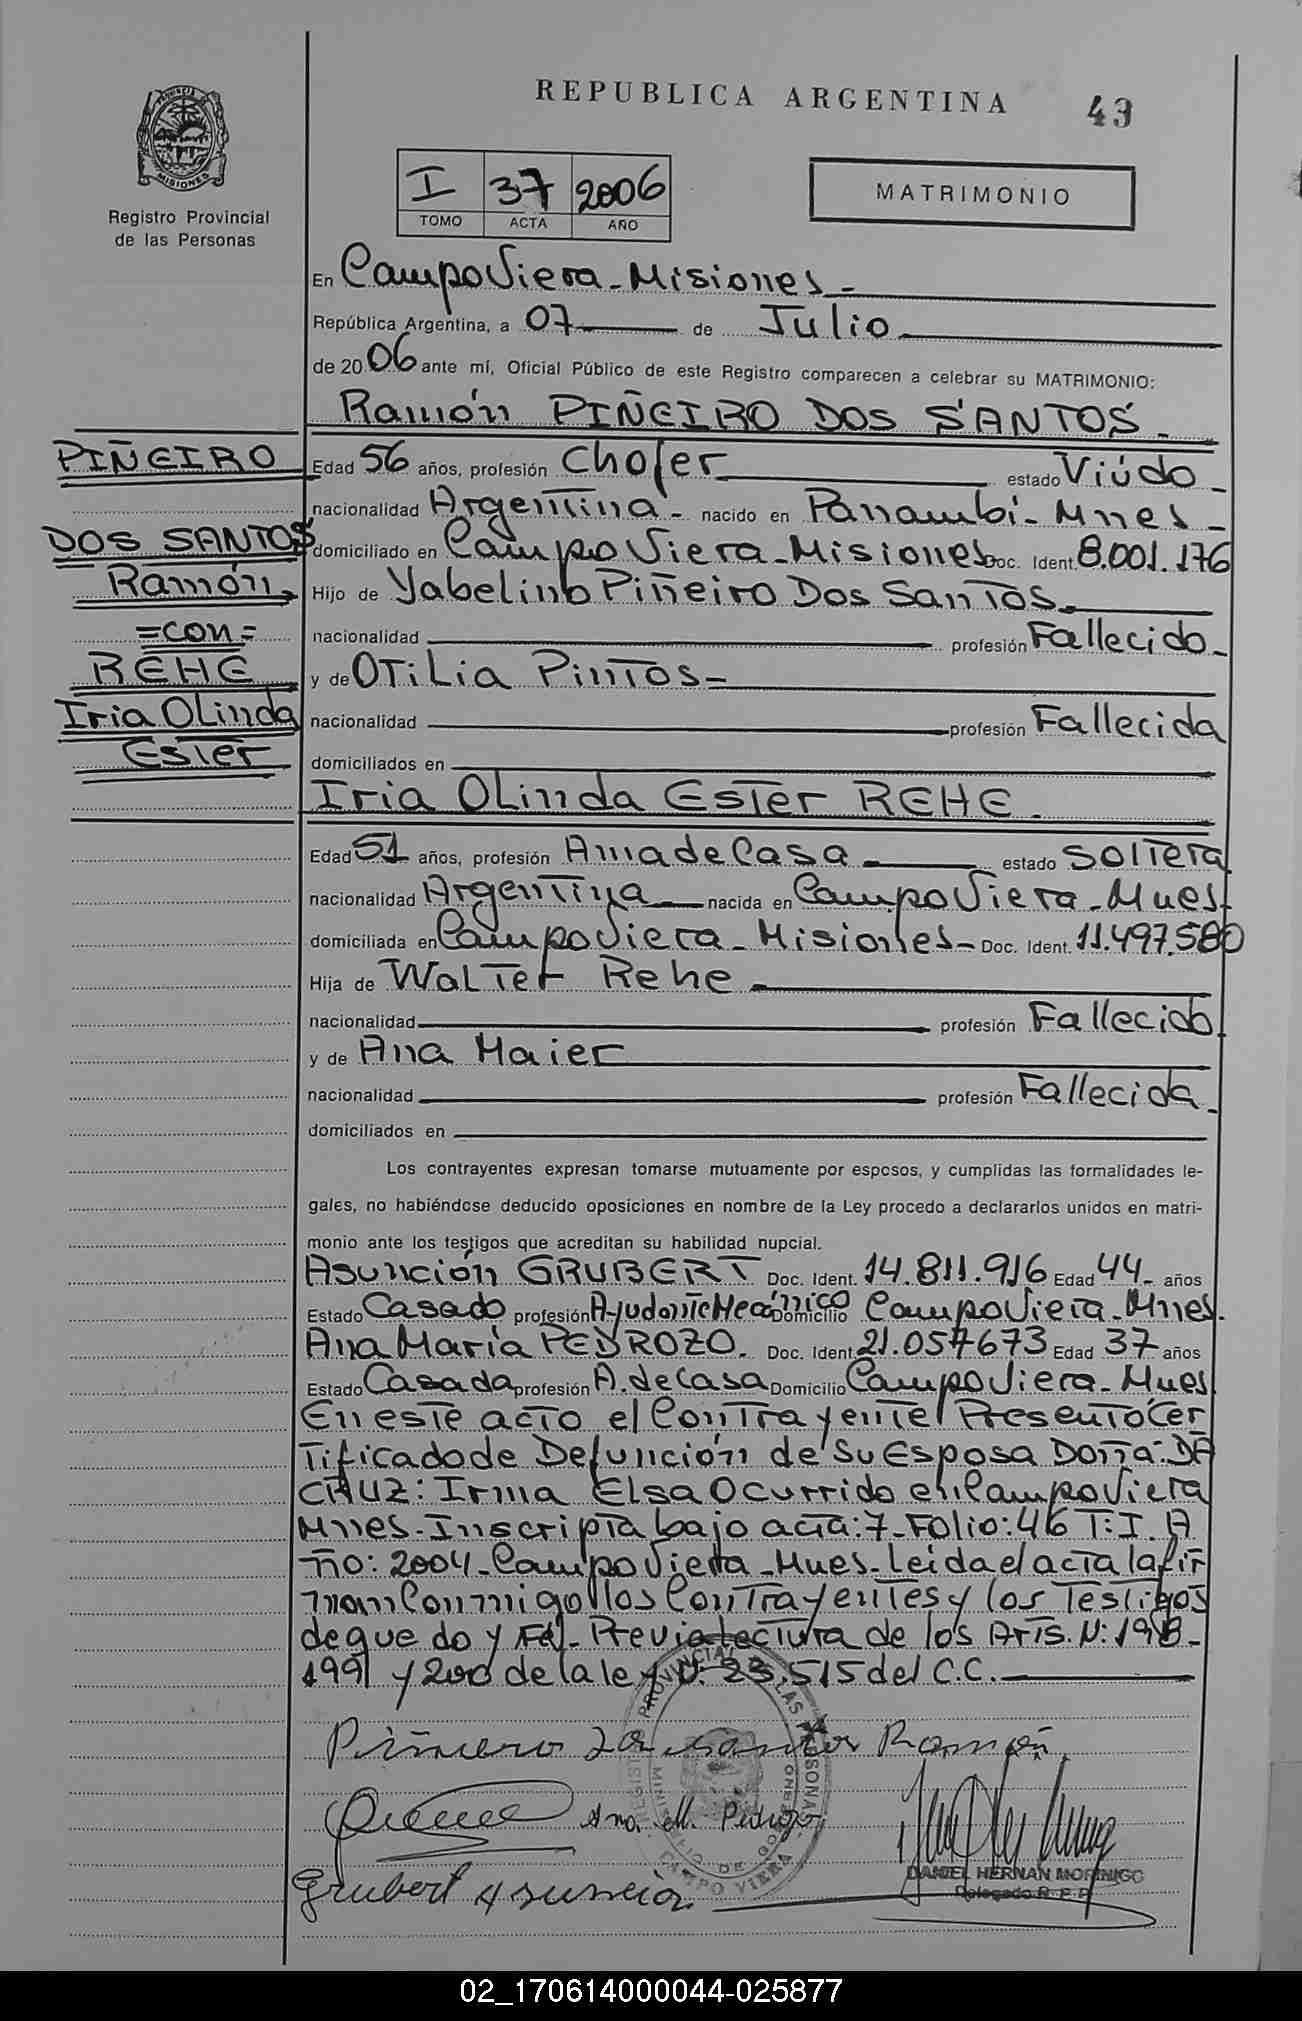 REPUBLICA ARGENTINA
43
PROVINCIA
MISIONES
Registro Provincial
de las Personas
I 37 2006
TOMO ACTA AÑO
MATRIMONIO
En Campo Viera - Misiones -
República Argentina, a 07 de Julio
de 2006 ante mí, Oficial Público de este Registro comparecen a celebrar su MATRIMONIO:
Ramón PIÑEIRO DOS SANTOS -
PIÑEIRO
DOS SANTOS
Ramón
=con=
REHE
Iria Olinda
Ester
Edad 56 años, profesión Chofer estado Viúdo -
nacionalidad Argentina - nacido en Panambí - Mnes -
domiciliado en Campo Viera - Misiones Doc. Ident. 8.001.176
Hijo de Yabelino Piñeiro Dos Santos
nacionalidad profesión Fallecido -
y de Otilia Pintos -
nacionalidad profesión Fallecida
domiciliados en
Iria Olinda Ester REHE -
Edad 51 años, profesión Ama de Casa estado Soltera
nacionalidad Argentina nacida en Campo Viera - Mnes -
domiciliada en Campo Viera - Misiones - Doc. Ident. 11.497.580
Hija de Walter Rehe
nacionalidad profesión Fallecido
y de Ana Maier
nacionalidad profesión Fallecida -
domiciliados en
Los contrayentes expresan tomarse mutuamente por esposos, y cumplidas las formalidades le-
gales, no habiéndose deducido oposiciones en nombre de la Ley procedo a declararlos unidos en matri-
monio ante los testigos que acreditan su habilidad nupcial.
Asunción GRUBERT Doc. Ident. 14.811.916 Edad 44 - años
Estado Casado profesión Ayudante Mecánico Domicilio Campo Viera - Mnes -
Ana María PEDROZO. Doc. Ident. 21.057673 Edad 37 años
Estado Casada profesión A. de Casa Domicilio Campo Viera - Mnes
En este acto el Contrayente Presentó Cer
tificado de Defunción de su Esposa Doña: DA
CRUZ: Irma Elsa Ocurrido en Campo Viera
Mnes - Inscripta bajo acta: 7 - Folio: 46 T: I. A
ño: 2004 - Campo Viera - Mnes - Leida el acta la fir
man Conmigo los Contrayentes y los Testigos
de que do y Fé - Previa lectura de los Arts. N: 198 -
199 y 200 de la ley N: 23.515 del C.C.
Piñeiro Dos Santos Ramón
Ana. M. Pedrozo
Grubert Asuncion
DANIEL HERNAN MORINIGO
Delegado R. P. P.
CAMPO VIERA
02_170614000044-025877